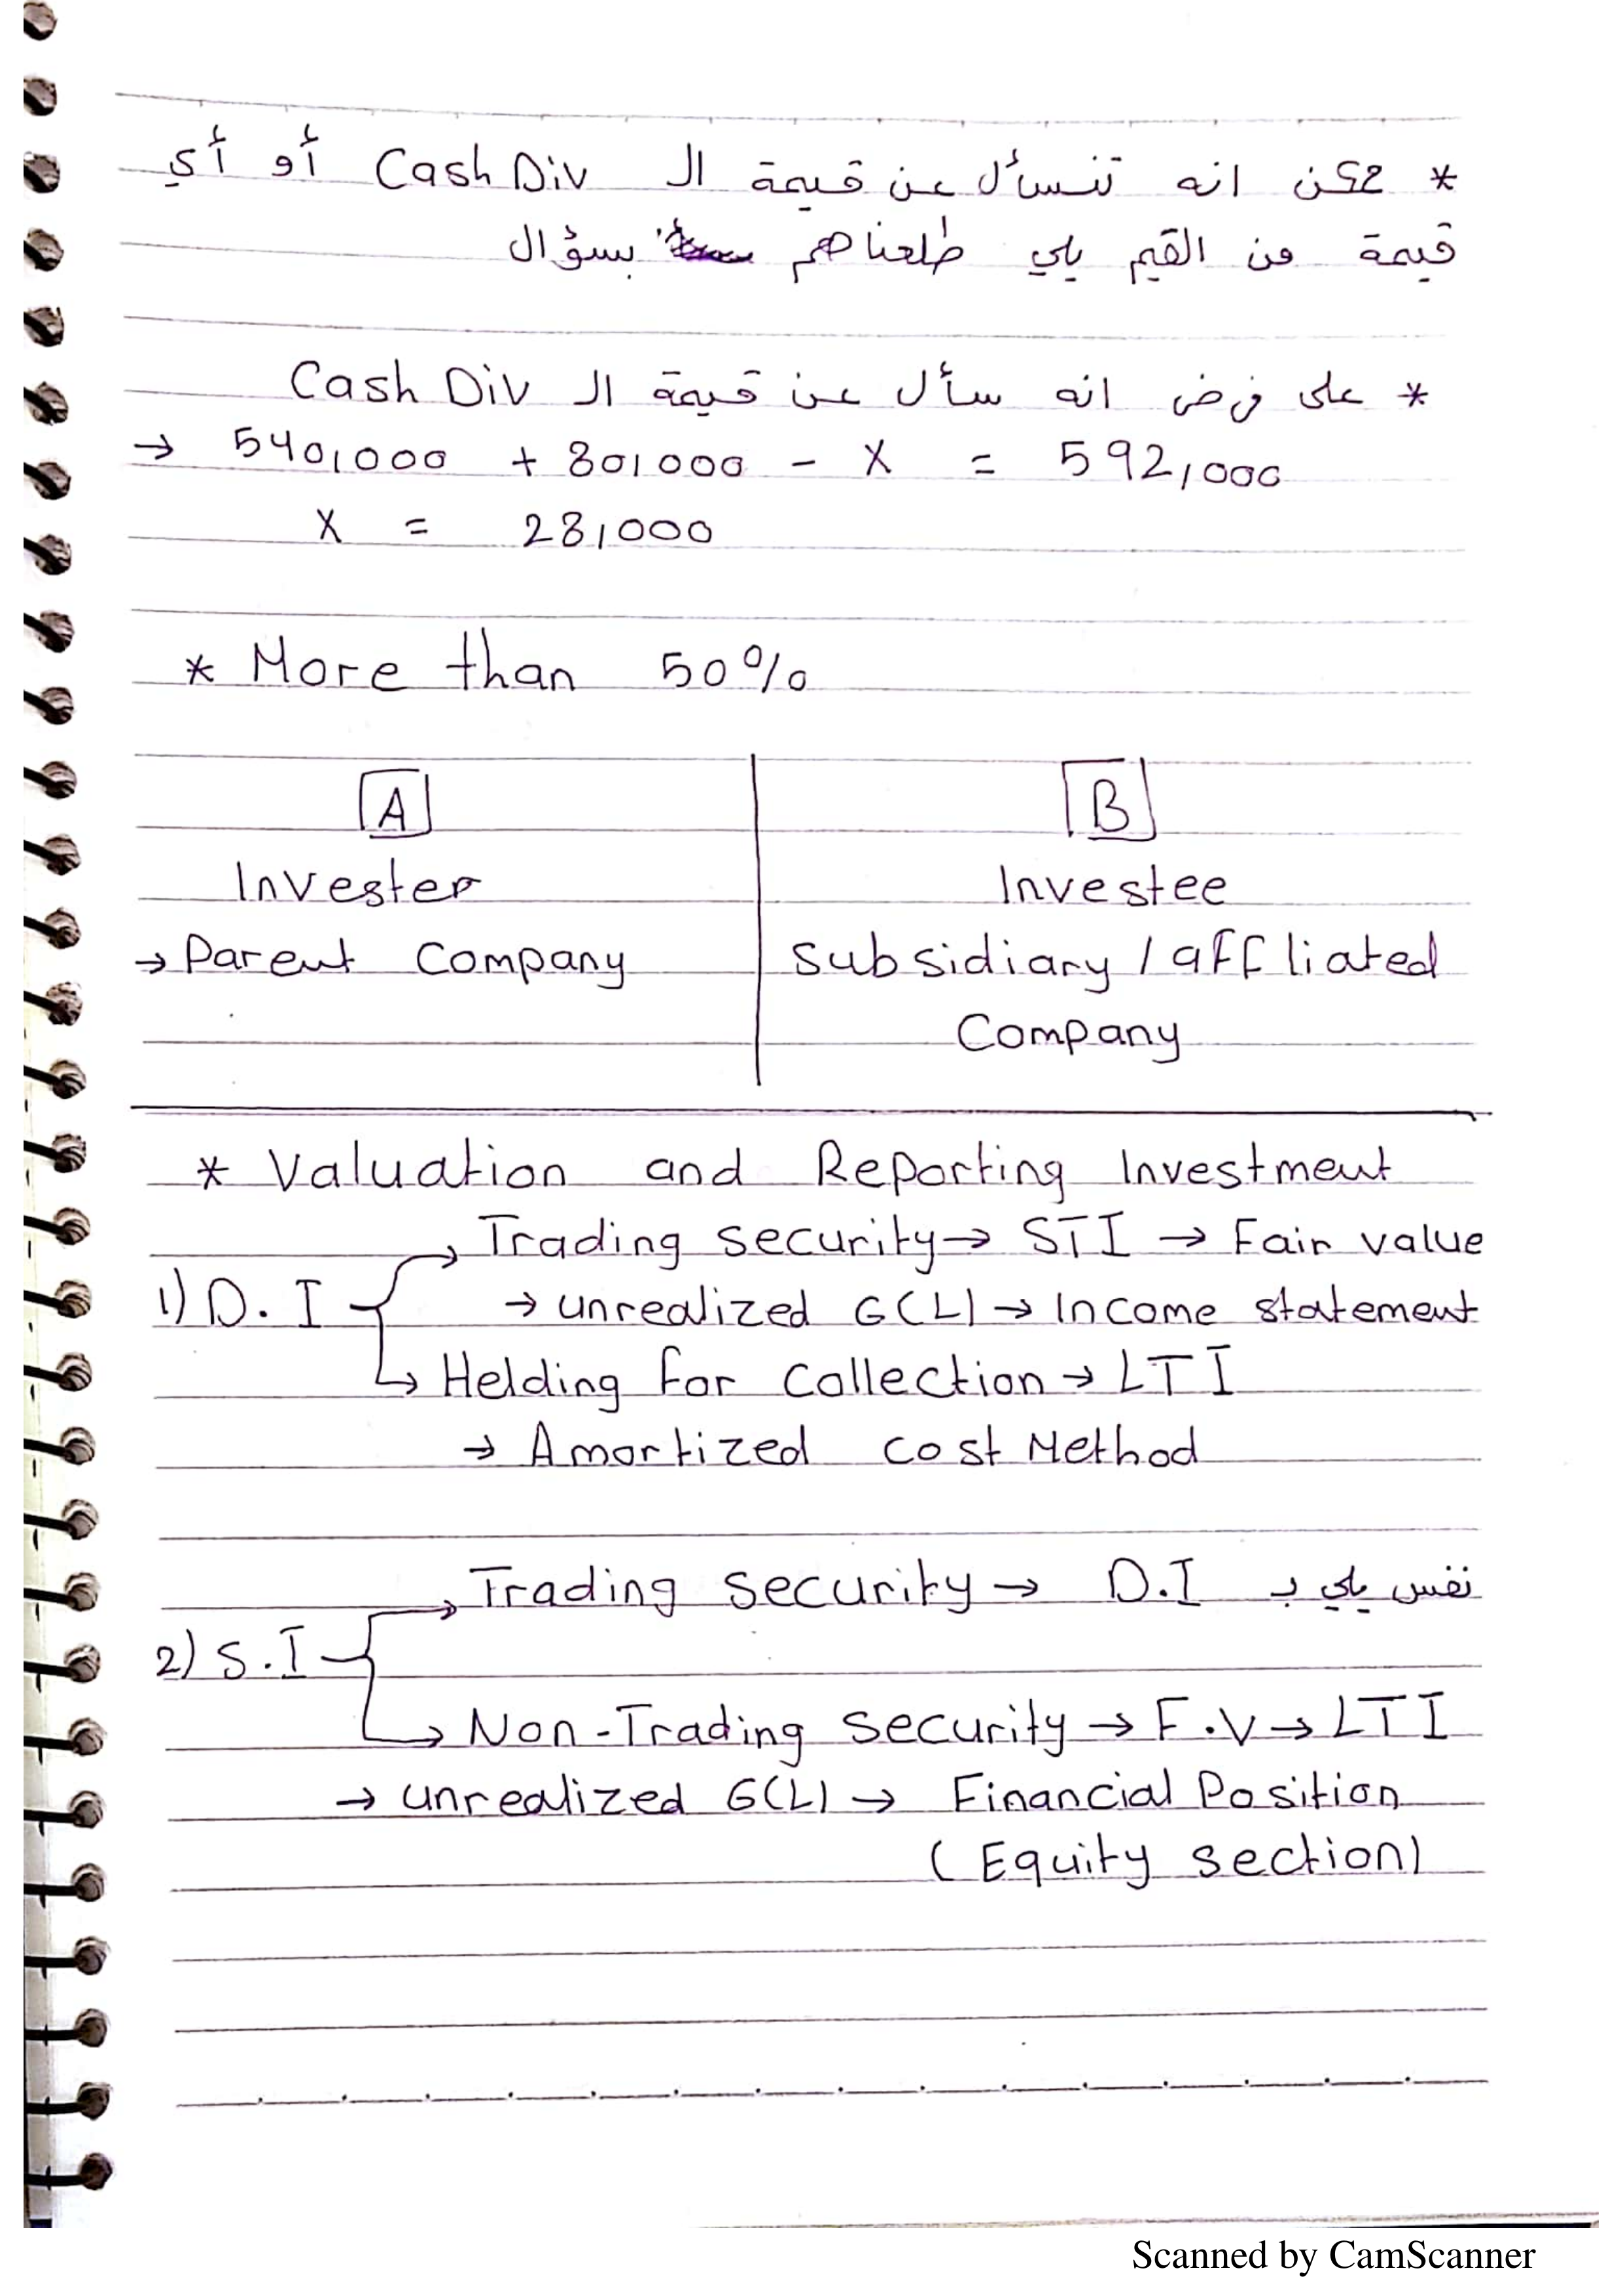 * ممكن انه تنسأل عن قيمة ال Cash Div أو أي
قيمة من القيم يلي طلعناهم بسؤال
* على فرض انه سأل عن قيمة ال Cash Div
→ 540,000 + 80,000 - X = 592,000
X = 28,000
* More than 50%
A
B
Invester
Investee
→ Parent Company
Subsidiary / affliated
Company
* Valuation and Reporting Investment
Trading security → STI → Fair value
1) D.I
→ unrealized G(L) → Income statement
Helding for collection → LTI
→ Amortized cost Method
Trading security → نفس يلي بـ D.I
2) S.I
Non-Trading security → F.V → LTI
→ unrealized G(L) → Financial Position
(Equity section)
Scanned by CamScanner